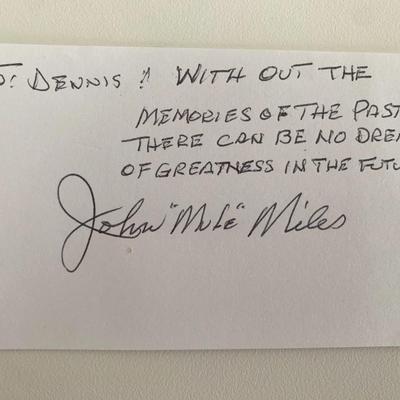 O: DENNIS! WITH OUT THE
MEMORIES OF THE PAST
THERE CAN BE NO DREA
OF GREATNESS IN THE FUTU
John "Mule" Miles